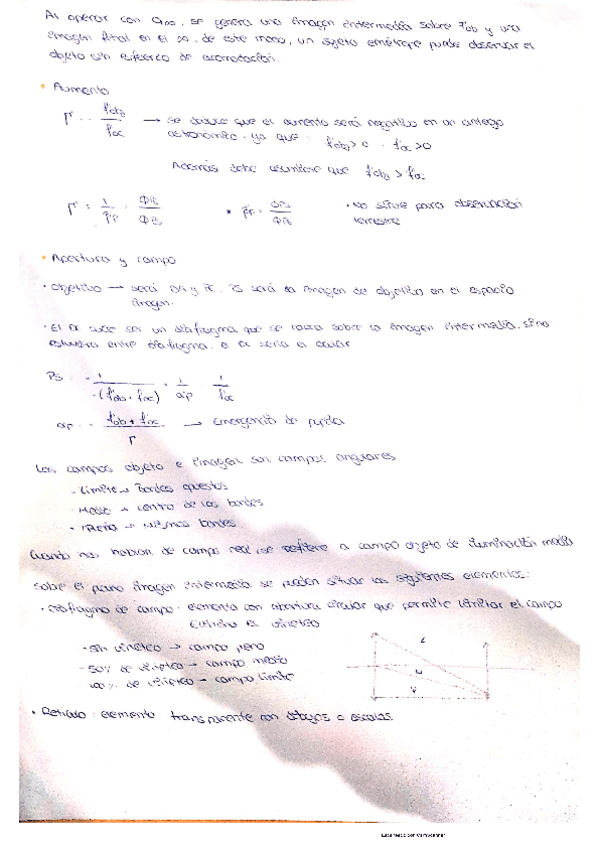 Al operar con a∞, se genera una imagen intermedia sobre F'ob y una
imagen final en el ∞, de este modo, un sujeto emétrope puede observar el
objeto sin esfuerzo de acomodación.
• Aumento
Γ = - f'ob / f'oc → se deduce que el aumento será negativo en un anteojo
astronómico, ya que: f'ob > 0 f'oc > 0
Además debe cumplirse que f'ob > f'oc
Γ = 1 / β'p = ΦPE / ΦPS • β'p = ΦPS / ΦPE • No sirve para observación
terrestre
• Apertura y campo
• Objetivo → será DA y PE. PS será la imagen de objetivo en el espacio
imagen.
• El DC suele ser un diafragma que se coloca sobre la imagen intermedia, si no
estuviera diafragma, el DC sería el ocular
PS 1 / -(f'ob + f'oc) 1 / a'p 1 / f'oc
a'p = f'ob + f'oc / Γ → emergencia de pupila
Los campos objeto e imagen son campos angulares
- Límite → Bordes opuestos
- Medio → centro de los bordes
- Pleno → mismos bordes
Cuando nos hablan de campo real, se refiere a campo objeto de iluminación media
sobre el plano imagen intermedia se pueden situar los siguientes elementos:
• Diafragma de campo: elemento con abertura circular que permite limitar el campo
elimina el viñeteo
- Sin viñeteo → campo pleno
- 50% de viñeteo → campo medio
- 100% de viñeteo → campo límite
L
M
• Retículo: elemento transparente con dibujos o escalas.